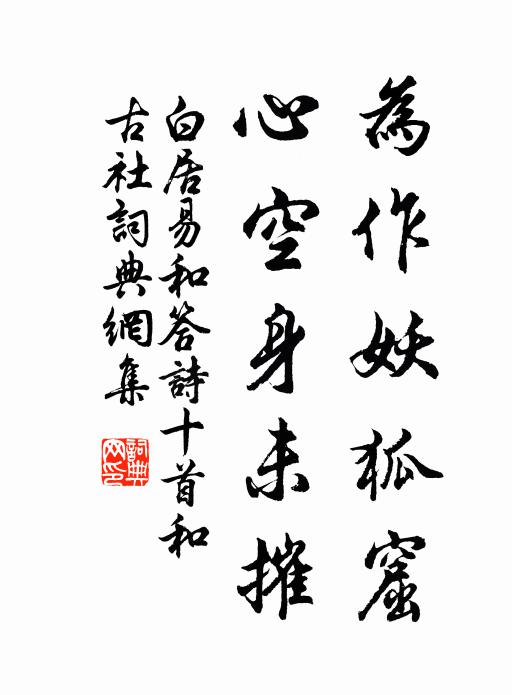 為作妖狐窟
心空身未摧
白居易和答詩十首和
古社詞典網集
詞典网印